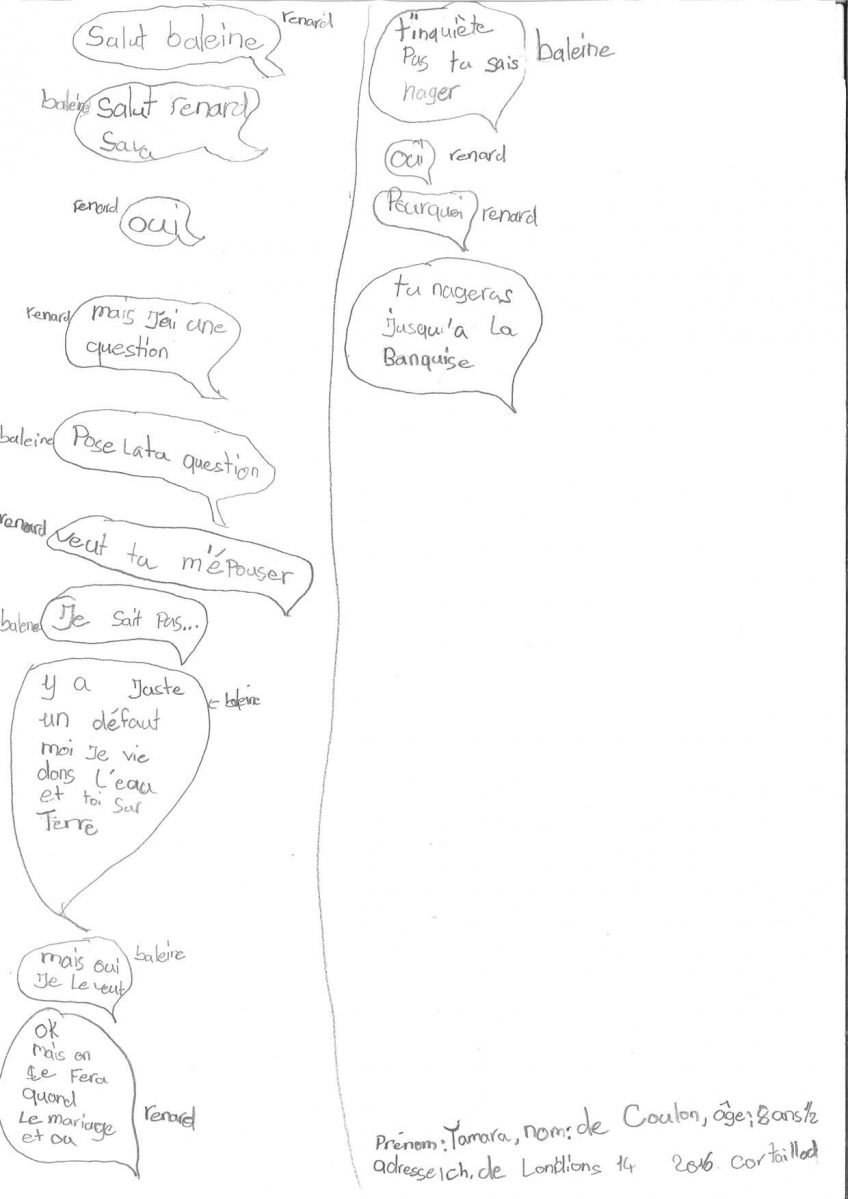 renard
Salut baleine
baleine
Salut renard
Sava
renard
oui
renard
mais J'ai une
question
baleine
Pose La ta question
renard
Veut tu m'épouser
baleine
Je sait Pas...
y a Juste
← baleine
un défaut
moi Je vie
dans L'eau
et toi Sur
Terre
mais oui
Je Le veut
baleine
OK
mais on
Le Fera
quand
Le mariage
et ou
renard
t'inquiète
Pas tu sais
nager
baleine
oui
renard
Pourquoi
renard
tu nageras
jusqu'a La
Banquise
Prénom: Tamara, nom: de Coulon, âge; 8ans ½
adresse; ch. de 14 2016 cortaillod